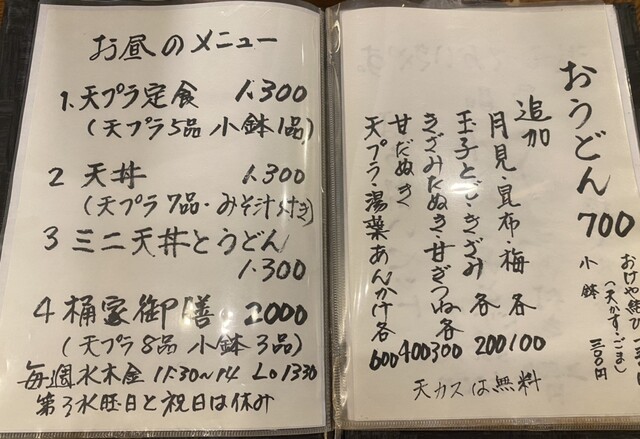 お昼のメニュー
1.天プラ定食 1.300
(天プラ5品 小鉢1品)
2 天丼 1.300
(天プラ7品・みそ汁付き)
3 ミニ天丼とうどん
1.300
4 桶家御膳 2000
(天プラ8品 小鉢3品)
毎週水木金 11:30~14 Lo 1330
第3水曜日と祝日は休み
おうどん 700
追加
月見・昆布・梅 各100
玉子とじ・きざみ 各200
きざみたぬき・甘ぎつね各300
甘だぬき 400
天プラ・湯葉あんかけ各600
天カスは無料
おけや結び
(天かす・ごま)
小鉢 三〇〇円